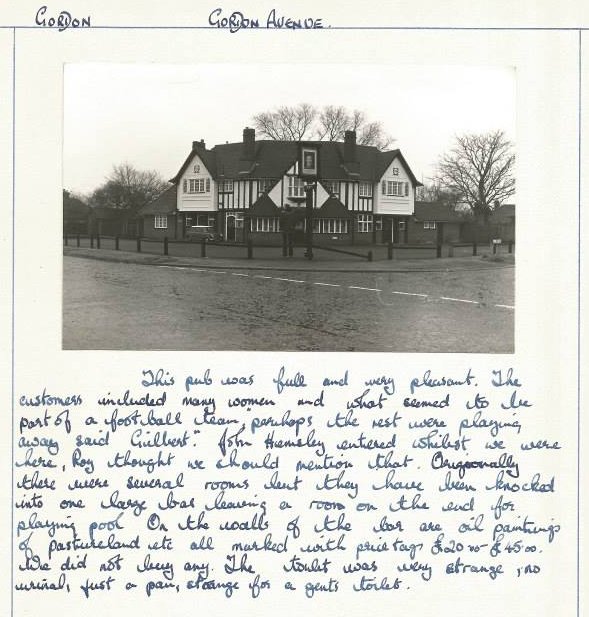 GORDON GORDON AVENUE.
This pub was full and very pleasant. The
customers included many women and what seemed to be
part of a football team, "perhaps the rest were playing
away said Gilbert". John Hemsley entered whilst we were
here, Roy thought we should mention that. Origionally
there were several rooms but they have been knocked
into one large bar leaving a room on the end for
playing pool. On the walls of the bar are oil paintings
of pastureland etc all marked with price tags £20 to £45.00.
We did not buy any. The toilet was very strange, no
urinal, just a pan, strange for a gents toilet.